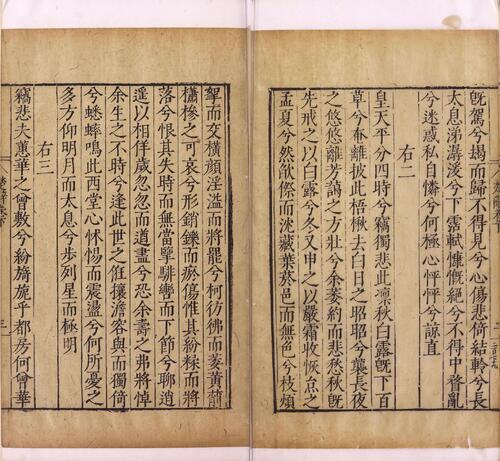 旣駕兮朅而歸不得見兮心傷悲倚結軨兮長
太息涕潺湲兮下霑軾慷慨絕兮不得中瞀亂
兮迷惑私自憐兮何極心怦怦兮諒直
右二
皇天平分四時兮竊獨悲此凜秋白露旣下百
草兮奄離披此梧楸去白日之昭昭兮襲長夜
之悠悠離芳藹之方壯兮余萎約而悲愁秋旣
先戒之以白露兮冬又申之以嚴霜收恢台之
孟夏兮然欿傺而沈藏葉菸邑而無色兮枝煩
挐而交橫顏淫溢而將罷兮柯彷彿而萎黃萷
櫹槮之可哀兮形銷鑠而瘀傷惟其紛糅而將
落兮恨其失時而無當擥騑轡而下節兮聊逍
遙以相佯歲忽忽而遒盡兮恐余壽之弗將悼
余生之不時兮逢此世之俇攘澹容與而獨倚
兮蟋蟀鳴此西堂心怵惕而震盪兮何所憂之
多方仰明月而太息兮步列星而極明
右三
竊悲夫蕙華之曾敷兮紛旖旎乎都房何曾華
三